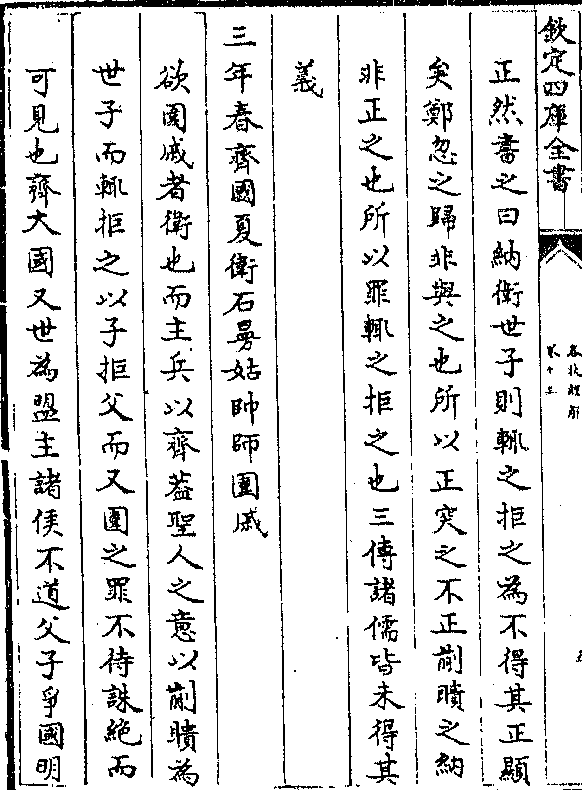 欽定四庫全書
春秋經解
卷十二
正然書之曰納衛世子則輒之拒之為不得其正顯
矣鄭忽之歸非與之也所以正突之不正蒯聵之納
非正之也所以罪輒之拒之也三傳諸儒皆未得其
義
三年春齊國夏衛石曼姑帥師圍戚
欲圍戚者衛也而主兵以齊蓋聖人之意以蒯聵為
世子而輒拒之以子拒父而又圍之罪不待誅絕而
可見也齊大國又世為盟主諸侯不道父子爭國明